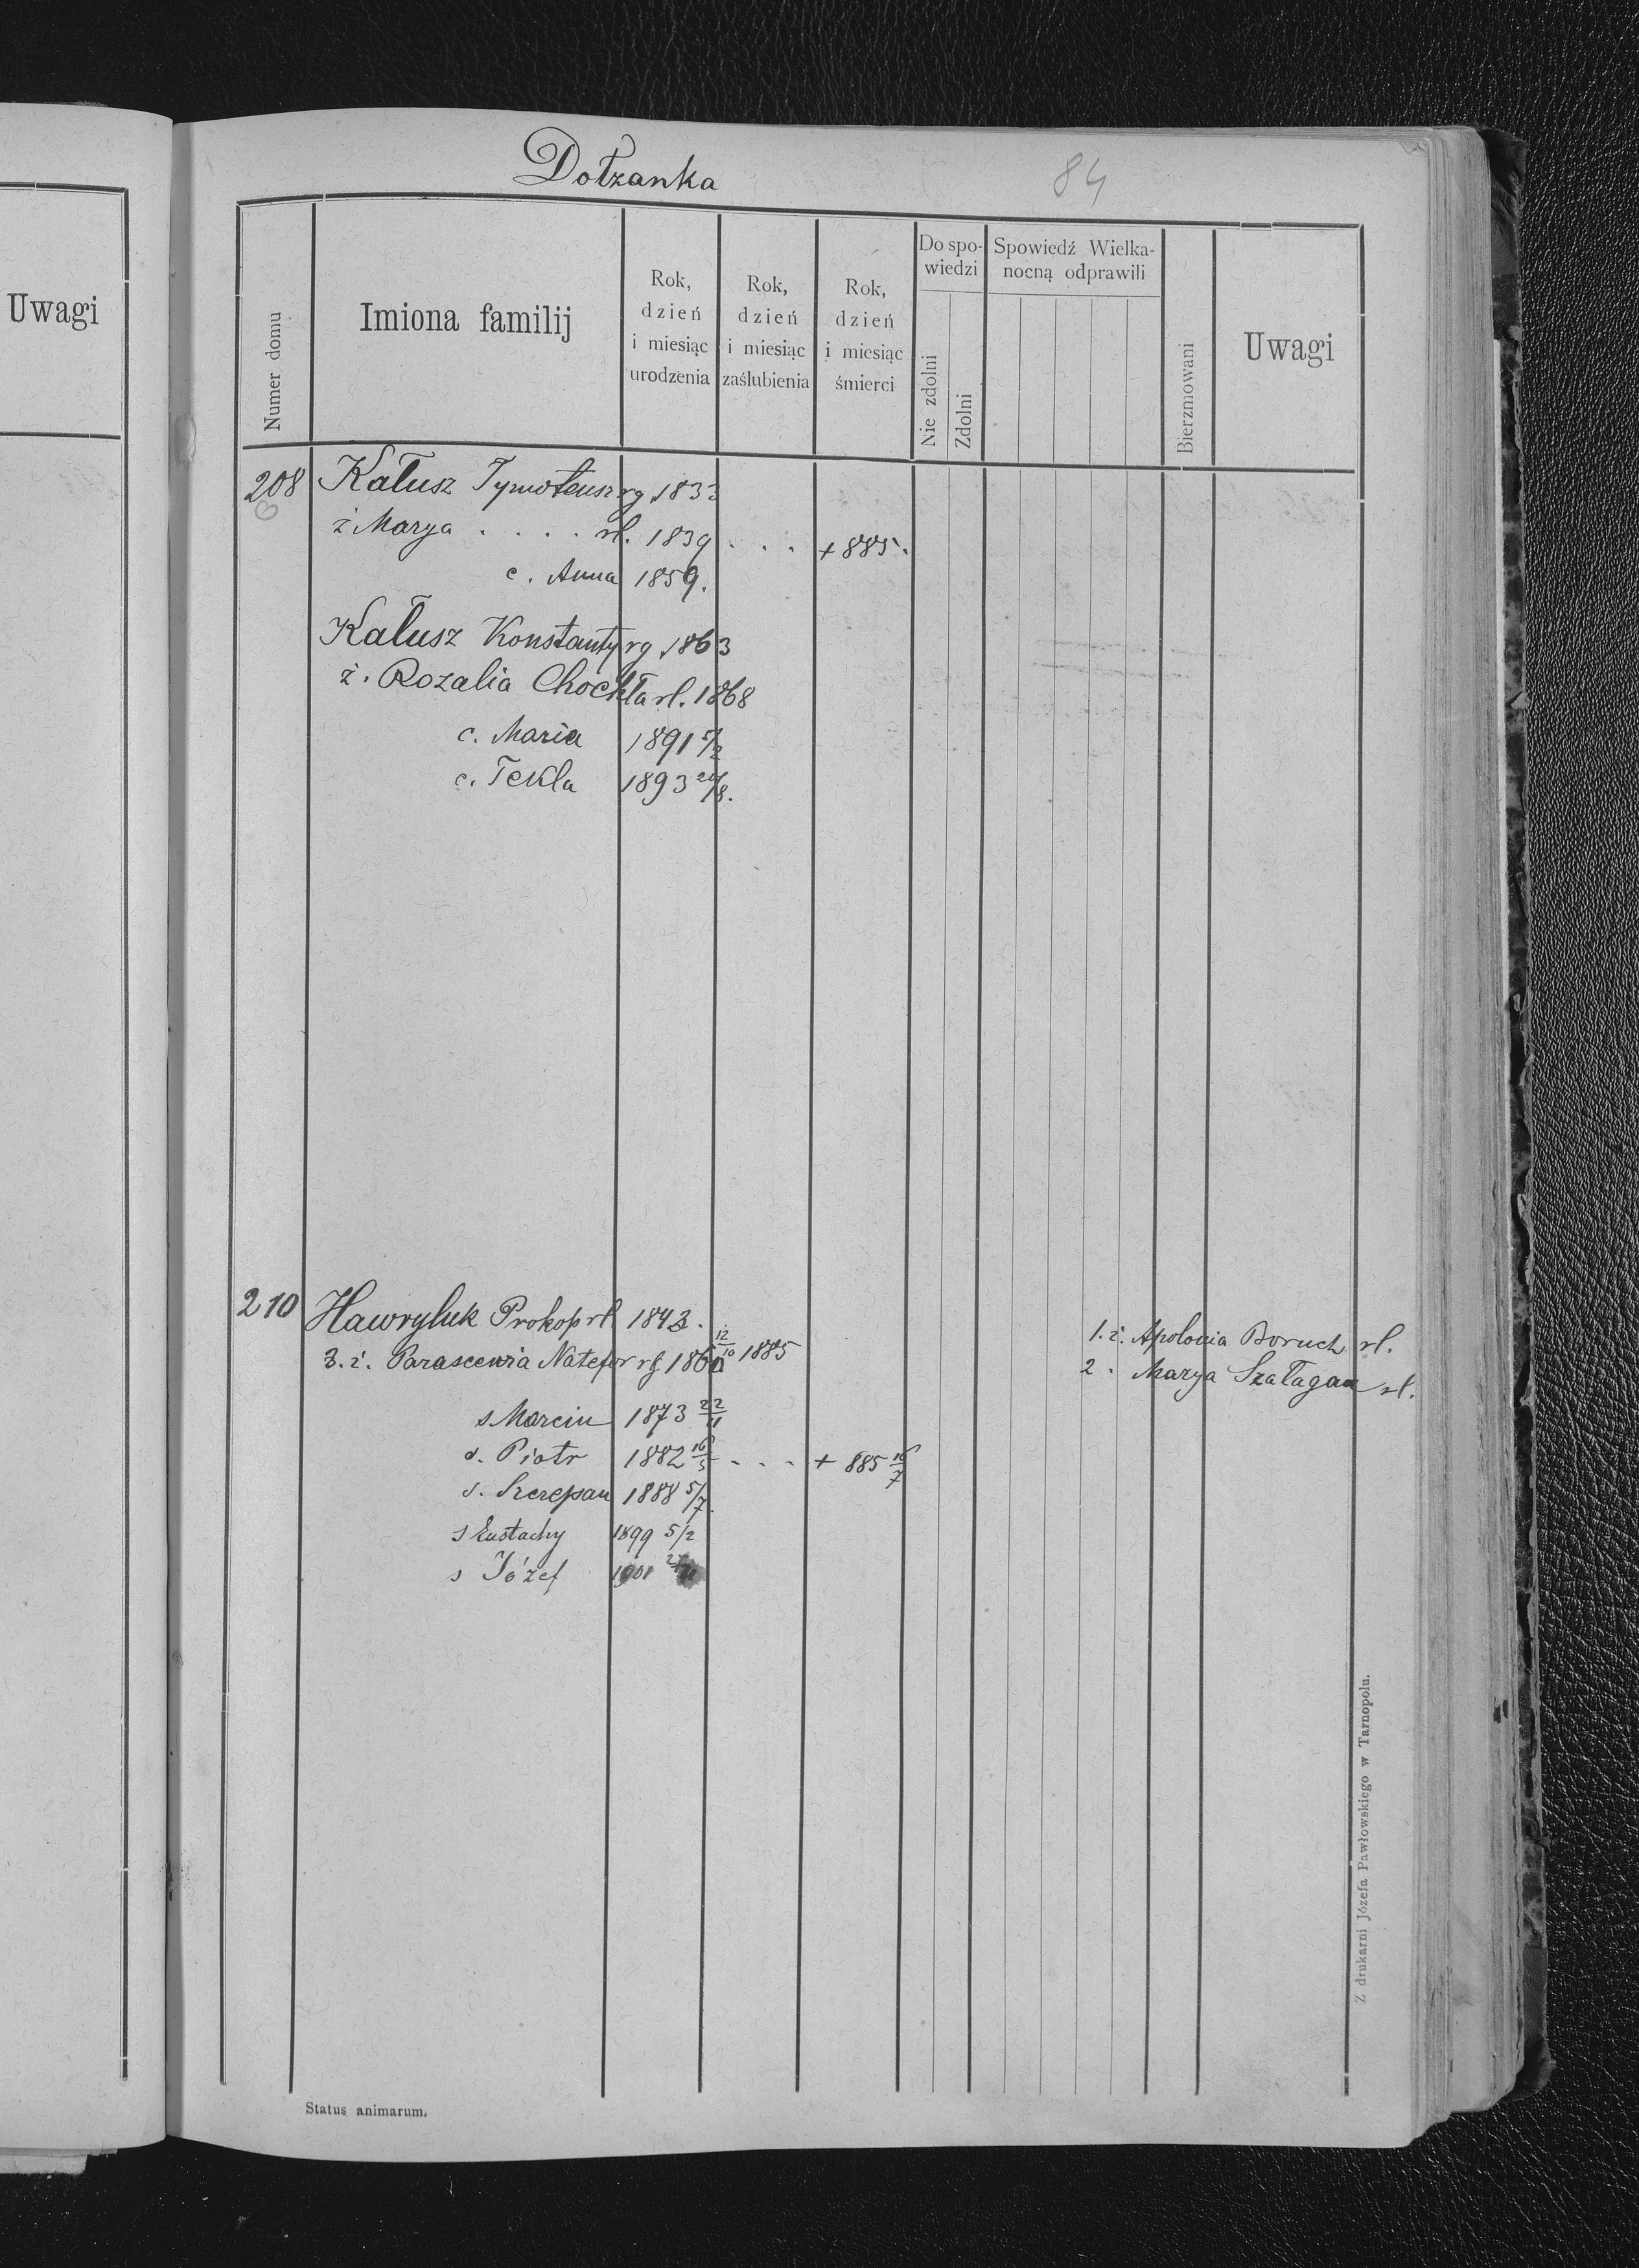 Dołżanka
84
Uwagi
Numer domu
Imiona familij
Rok, dzień i miesiąc urodzenia
Rok, dzień i miesiąc zaślubienia
Rok, dzień i miesiąc śmierci
Do spowiedzi
Nie zdolni
Zdolni
Spowiedź Wielkanocną odprawili
Bierzmowani
Uwagi
208 Kałusz Tymoteusz rg. 1833
ż Marya . . . . rl. 1839 . . . + 885.
c. Anna 1859.
Kałusz Konstanty rg. 1863
ż. Rozalia Chochła rl. 1868
c. Maria 1891 5/2
c. Tekla 1893 /8.
210 Hawryluk Prokop rl 1843.
3. ż. Parascewia Natefor rg 186 12/10 1885
1. ż. Apolonia Boruch rl.
2. Marya Szałagan rl.
s Marcin 1873 22/11
s. Piotr 1882 16/5 - - - + 885 16/7
s. Szczepan 1888 5/7.
s Eustachy 1899 5/2
s Józef 1901
Z drukarni Józefa Pawłowskiego w Tarnopolu.
Status animarum.